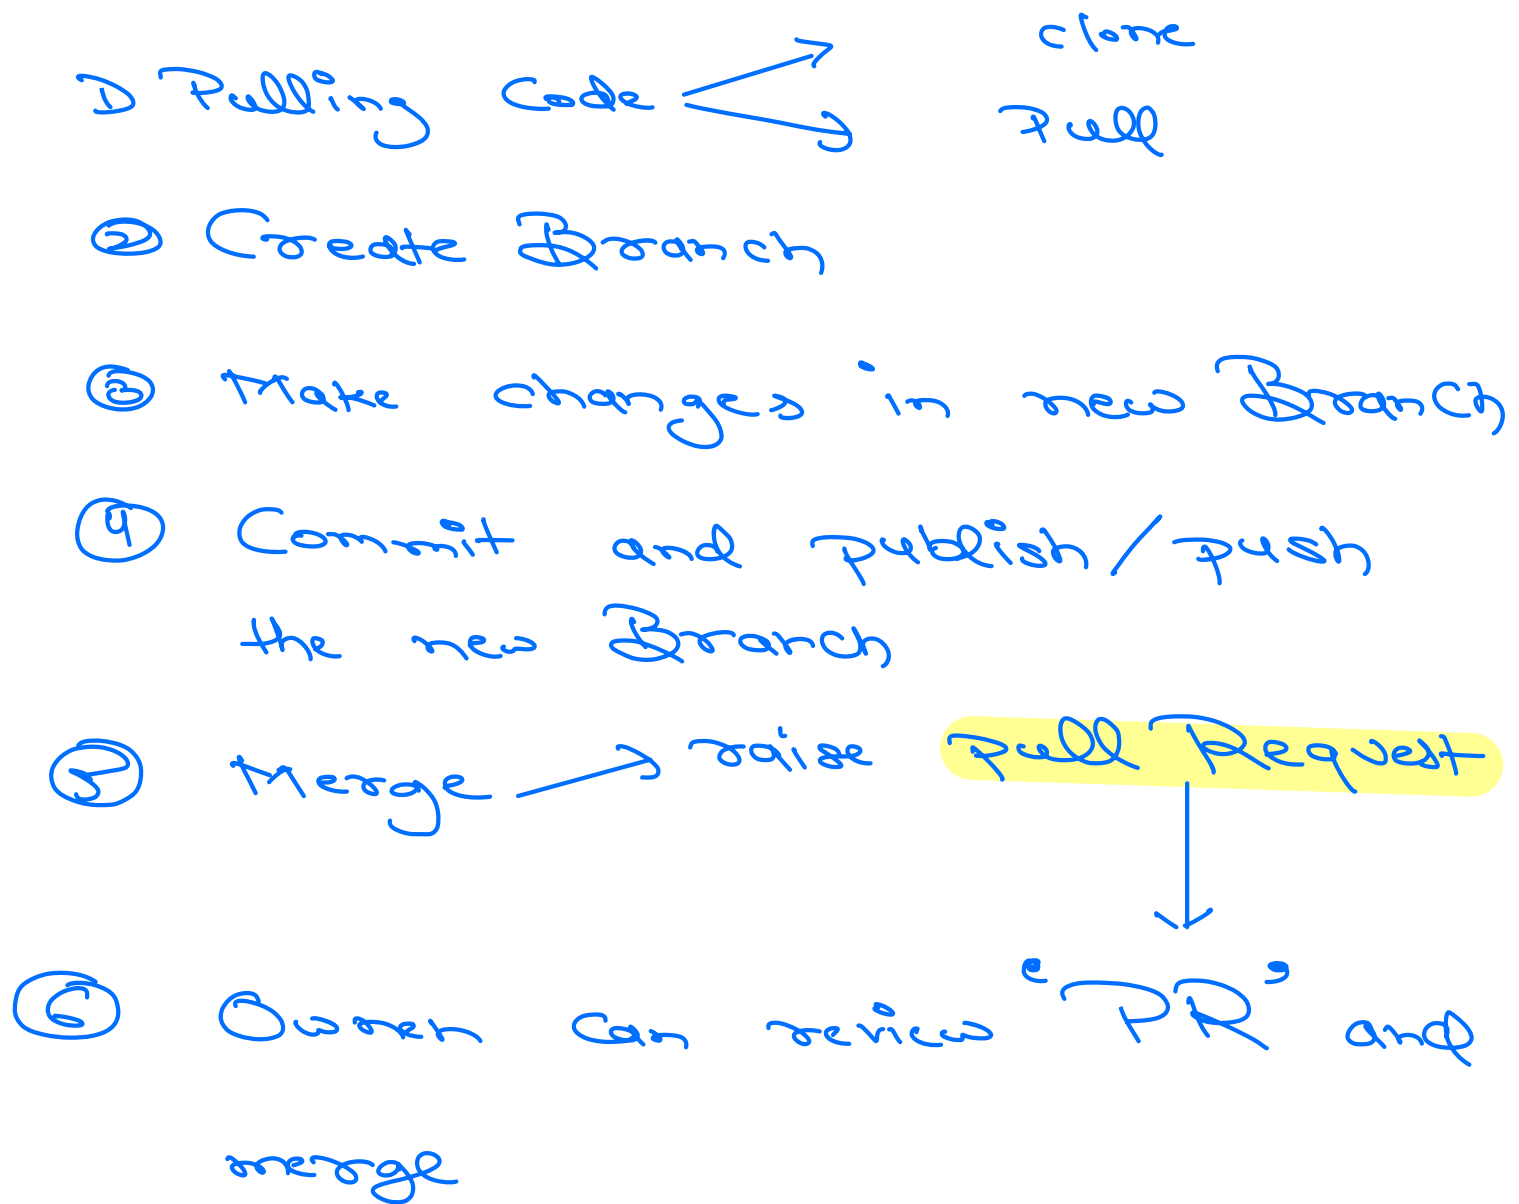 clone
1) Pulling Code
Pull
② Create Branch
③ Make changes in new Branch
④ Commit and publish/push
the new Branch
⑤ Merge → raise pull Request
⑥ Owner can review "PR" and
merge